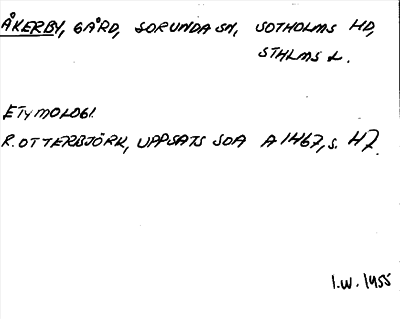 ÅKERBY, GÅRD, SORUNDA SN, SOTHOLMS HD,
STHLMS L.
ETYMOLOGI.
R. OTTERBJÖRK, UPPSATS SOA A 1467, S. 47.
I.W. 1955